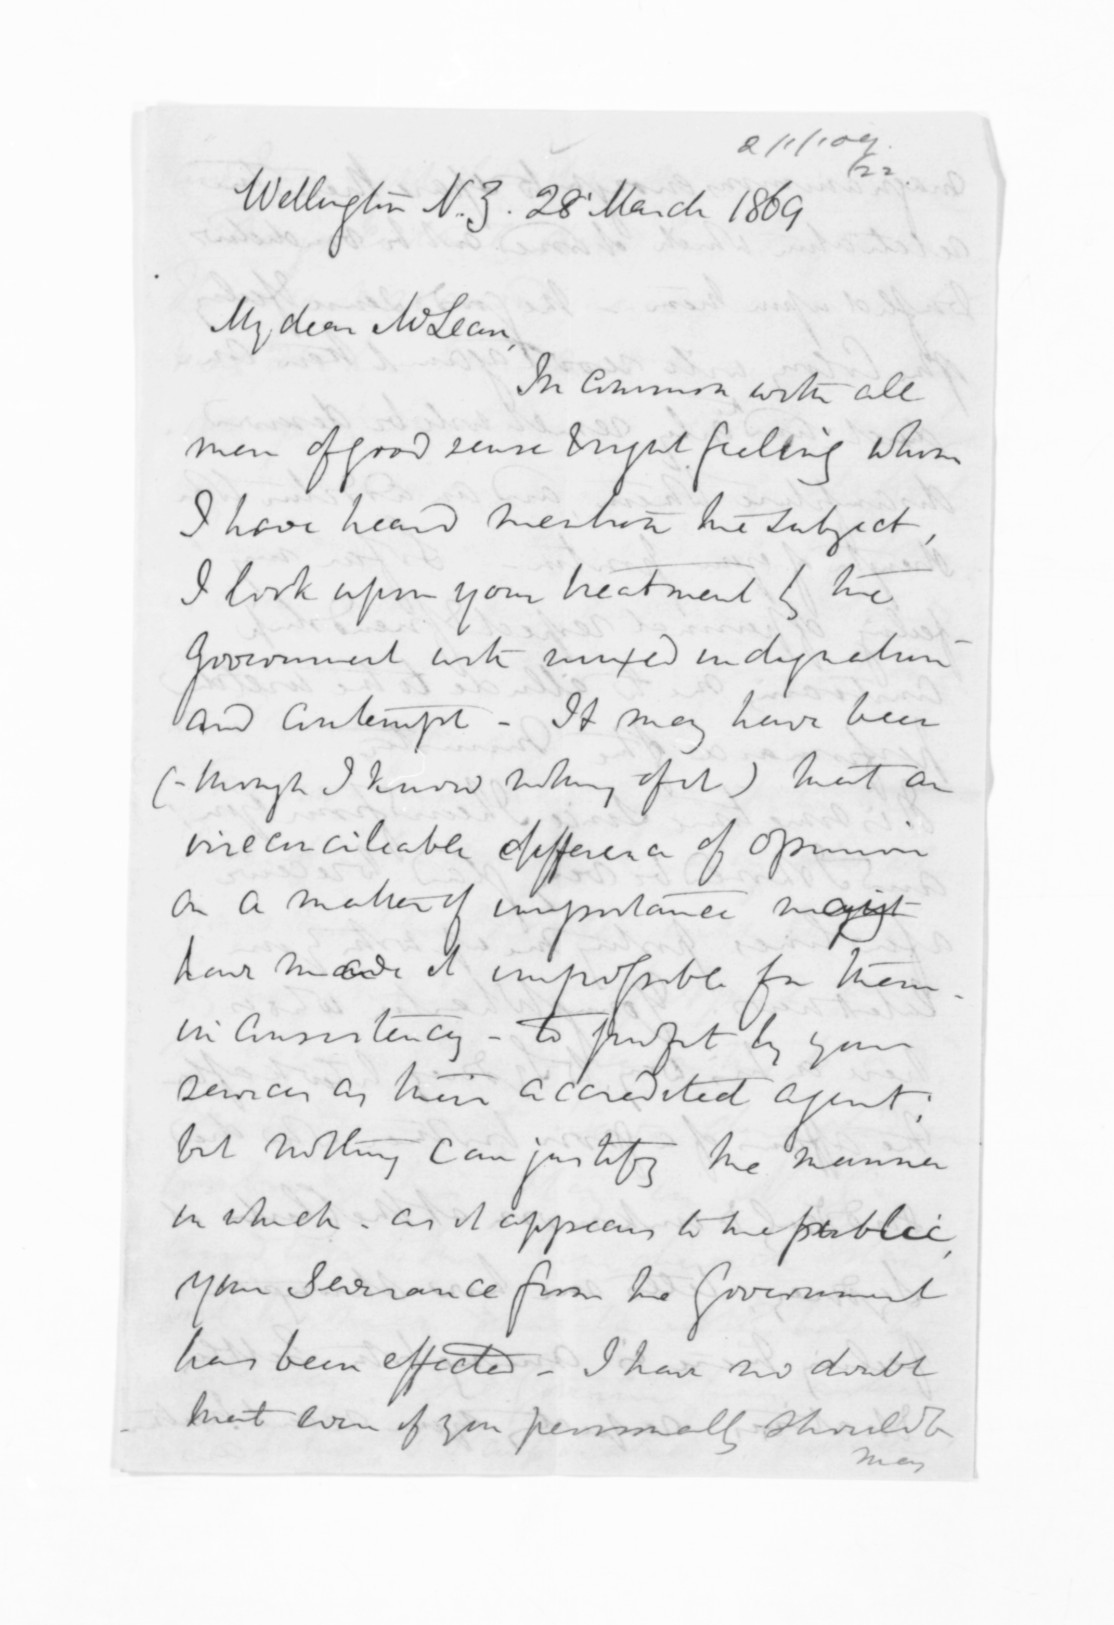 2/1/109.
/22.
Wellington N.Z. 28 March 1869
My dear McLean,
In common with all
men of good sense & right feeling whom
I have heard mention the subject,
I look upon your treatment by the
Government with mixed indignation
and contempt - It may have been
(- though I know nothing of it) that an
irreconcileable difference of opinion
on a matter of importance might
have made it impossible for them -
in consistency - to profit by your
services as their accredited agent;
but nothing can justify the manner
in which - as it appears to the public,
your severance from the Government
has been effected - I have no doubt
that even if you personally should
may